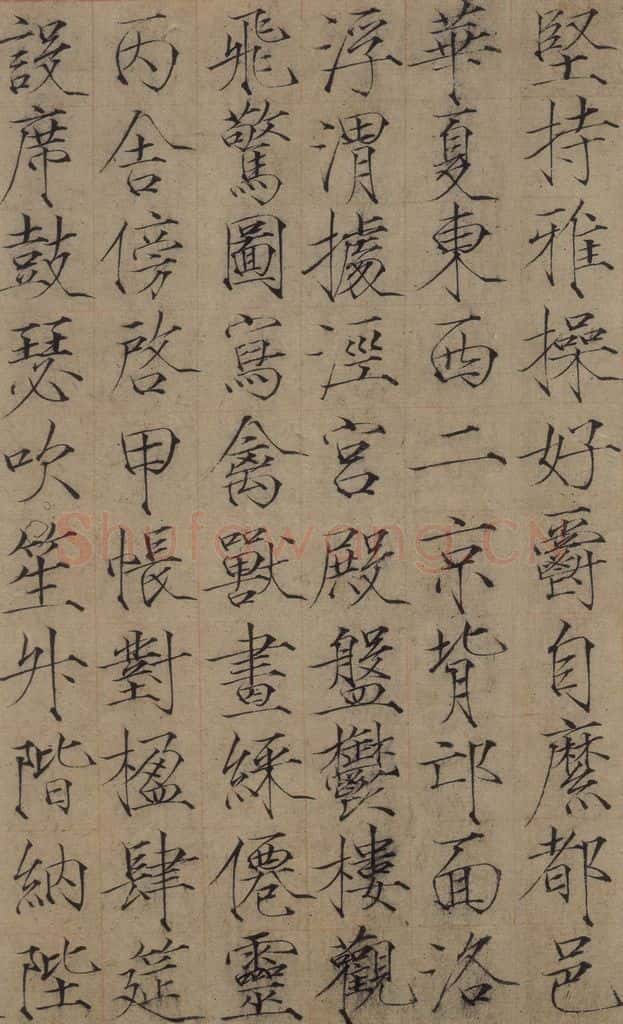 堅持雅操好爵自縻都邑
華夏東西二京背邙面洛
浮渭據涇宮殿盤鬱樓觀
飛驚圖寫禽獸畫綵僊靈
丙舍傍啓甲帳對楹肆筵
設席鼓瑟吹笙升階納陛
Shufawang.CN